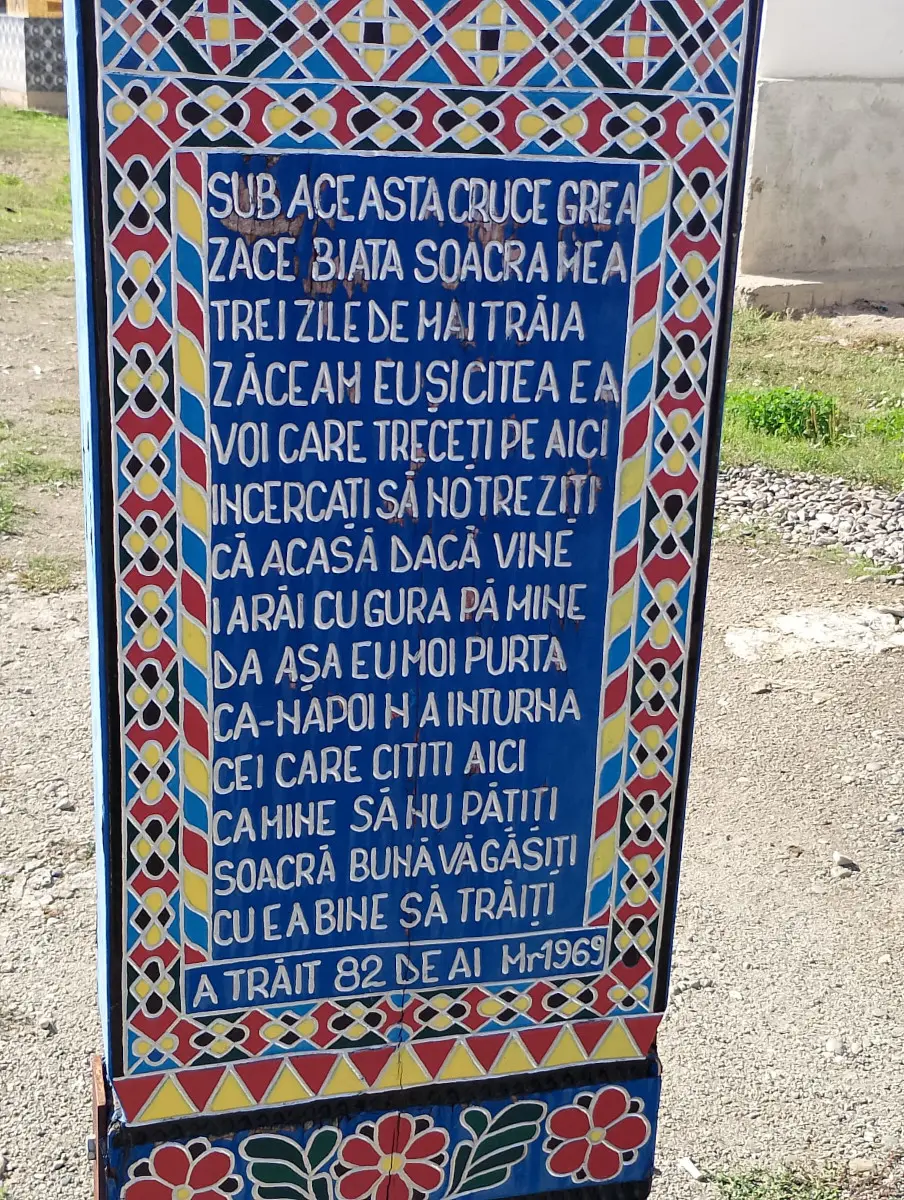 SUB ACEASTA CRUCE GREA
ZACE BIATA SOACRA MEA
TREI ZILE DE MAI TRĂIA
ZĂCEAM EU ȘI CITEA EA
VOI CARE TRECEȚI PE AICI
INCERCAȚI SĂ NO TREZIȚI
CĂ ACASĂ DACĂ VINE
IARĂI CU GURA PĂ MINE
DA AȘA EU MOI PURTA
CA-NĂPOI N A INTURNA
CEI CARE CITITI AICI
CA MINE SĂ NU PĂȚIȚI
SOACRĂ BUNĂ VĂ GĂSIȚI
CU EA BINE SĂ TRĂIȚI
A TRĂIT 82 DE AI Mr1969